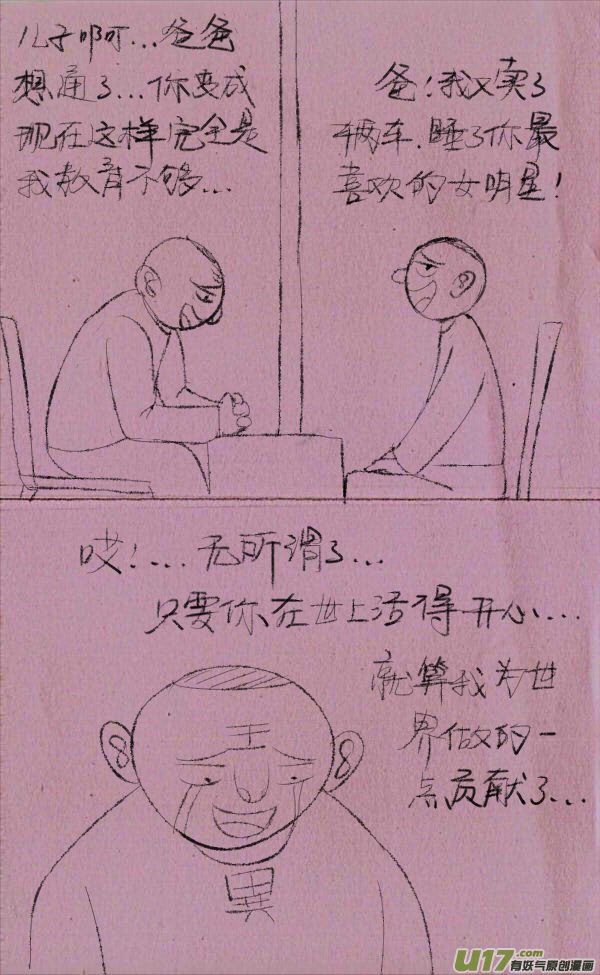 儿子啊...爸爸
想通了...你变成
现在这样完全是
我教育不够...
爸!我又卖了
辆车.睡了你最
喜欢的女明星!
哎!...无所谓了...
只要你在世上活得开心...
就算我为世
界做的一
点贡献了...
王
異
U17.com
有妖气原创漫画